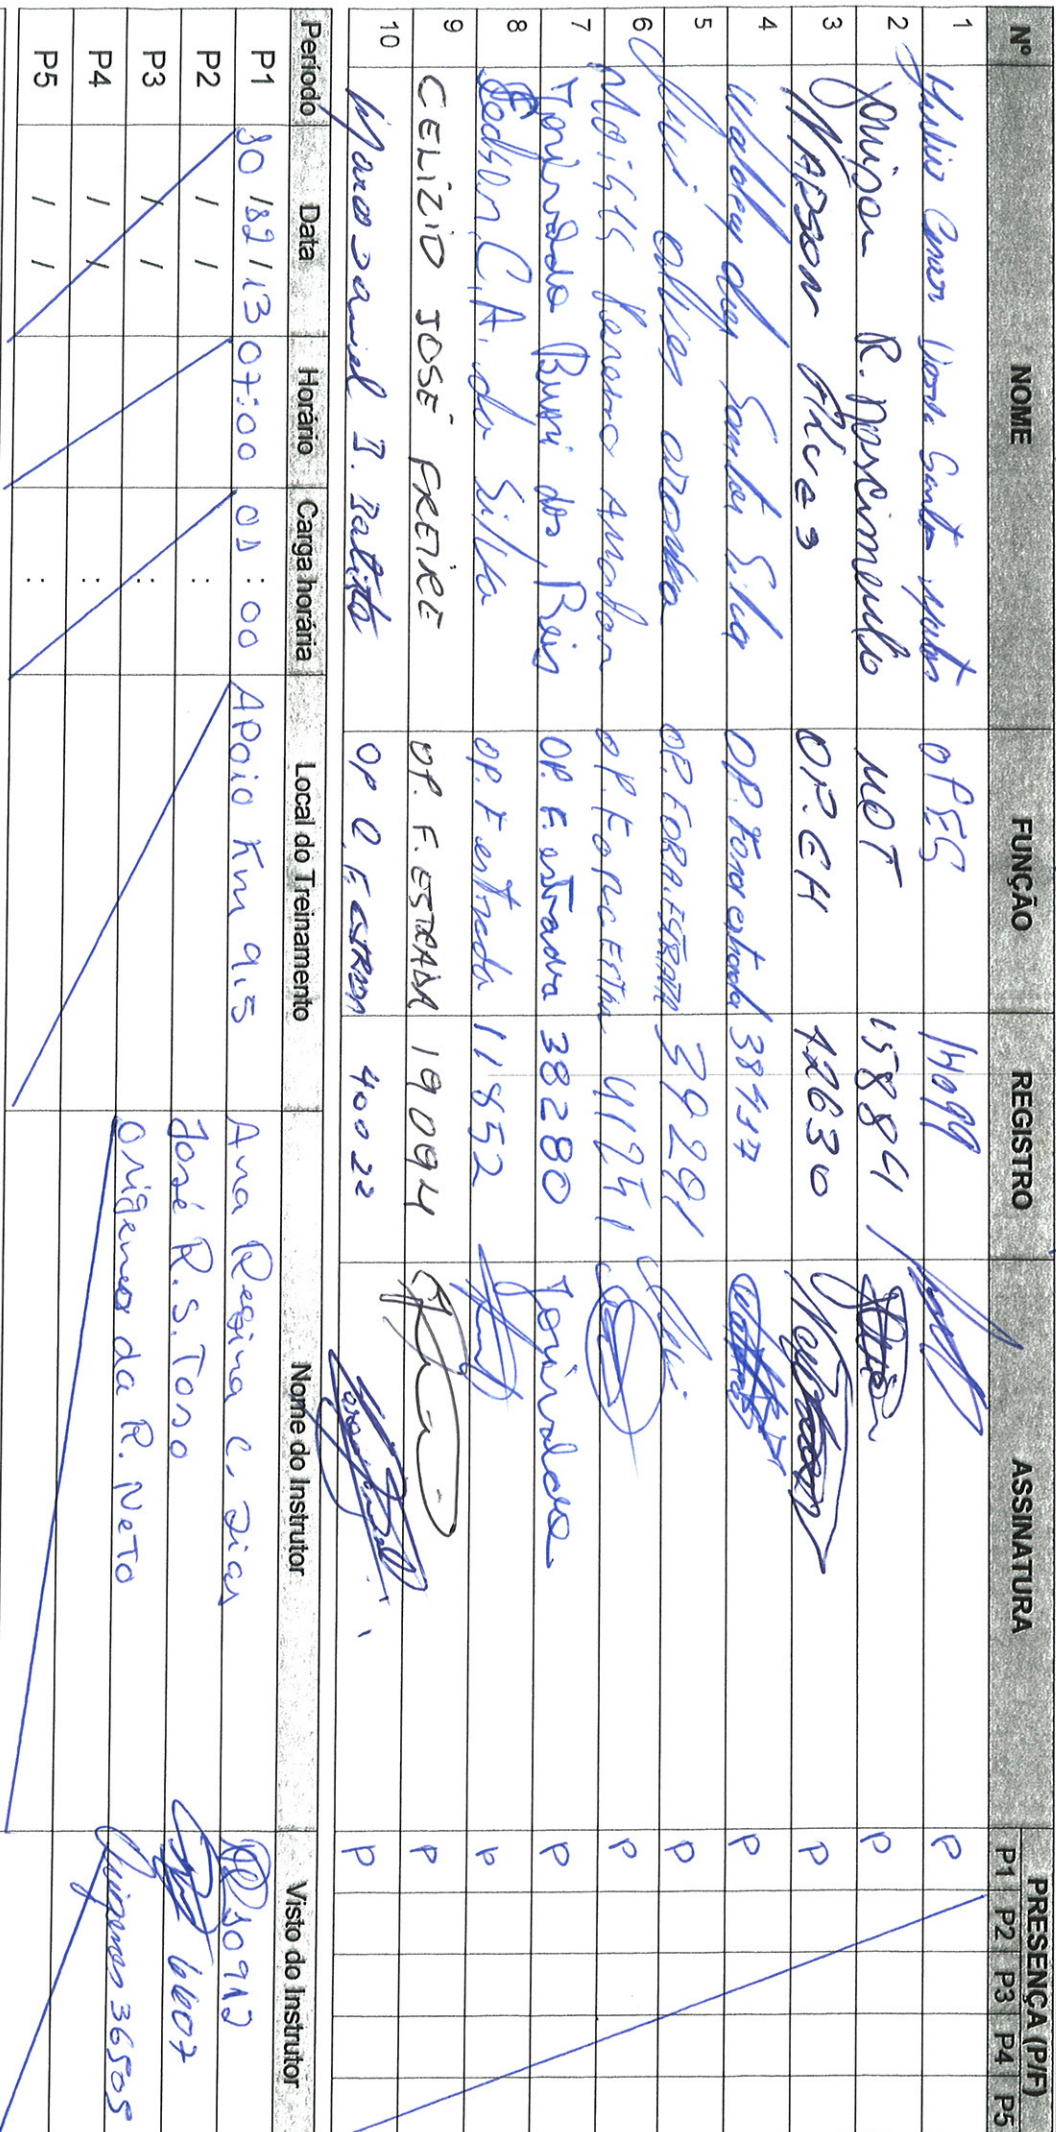 Nº NOME FUNÇÃO REGISTRO ASSINATURA PRESENÇA (P/F)
P1 P2 P3 P4 P5
1 P
2 R. Nascimento MOT 15884 P
3 WADSON Alves OP. EH 12630 P
4 Santos Silva OP. Fora estrada P
5 Alves OP. FORA. ESTRADA 39291 P
6 Moisés 41251 P
7 Jorivaldo Burri dos Reis OP. F. estrada 38280 Jorivaldo P
8 Gedson C.A. da Silva OP. F. estrada 11852 P
9 CELÍZIO JOSÉ FREIRE OP. F. ESTRADA 19094 P
10 Marco Daniel J. Batista 40022 P
Período Data Horário Carga horária Local do Treinamento Nome do Instrutor Visto do Instrutor
P1 30 / /13 07:00 01:00 APoio Km 9,5 Ana Regina C. Dias 10912
P2 / / : José R. S. Toso 6607
P3 / / : Origenes da R. NeTo Origenes 36505
P4 / / :
P5 / / :